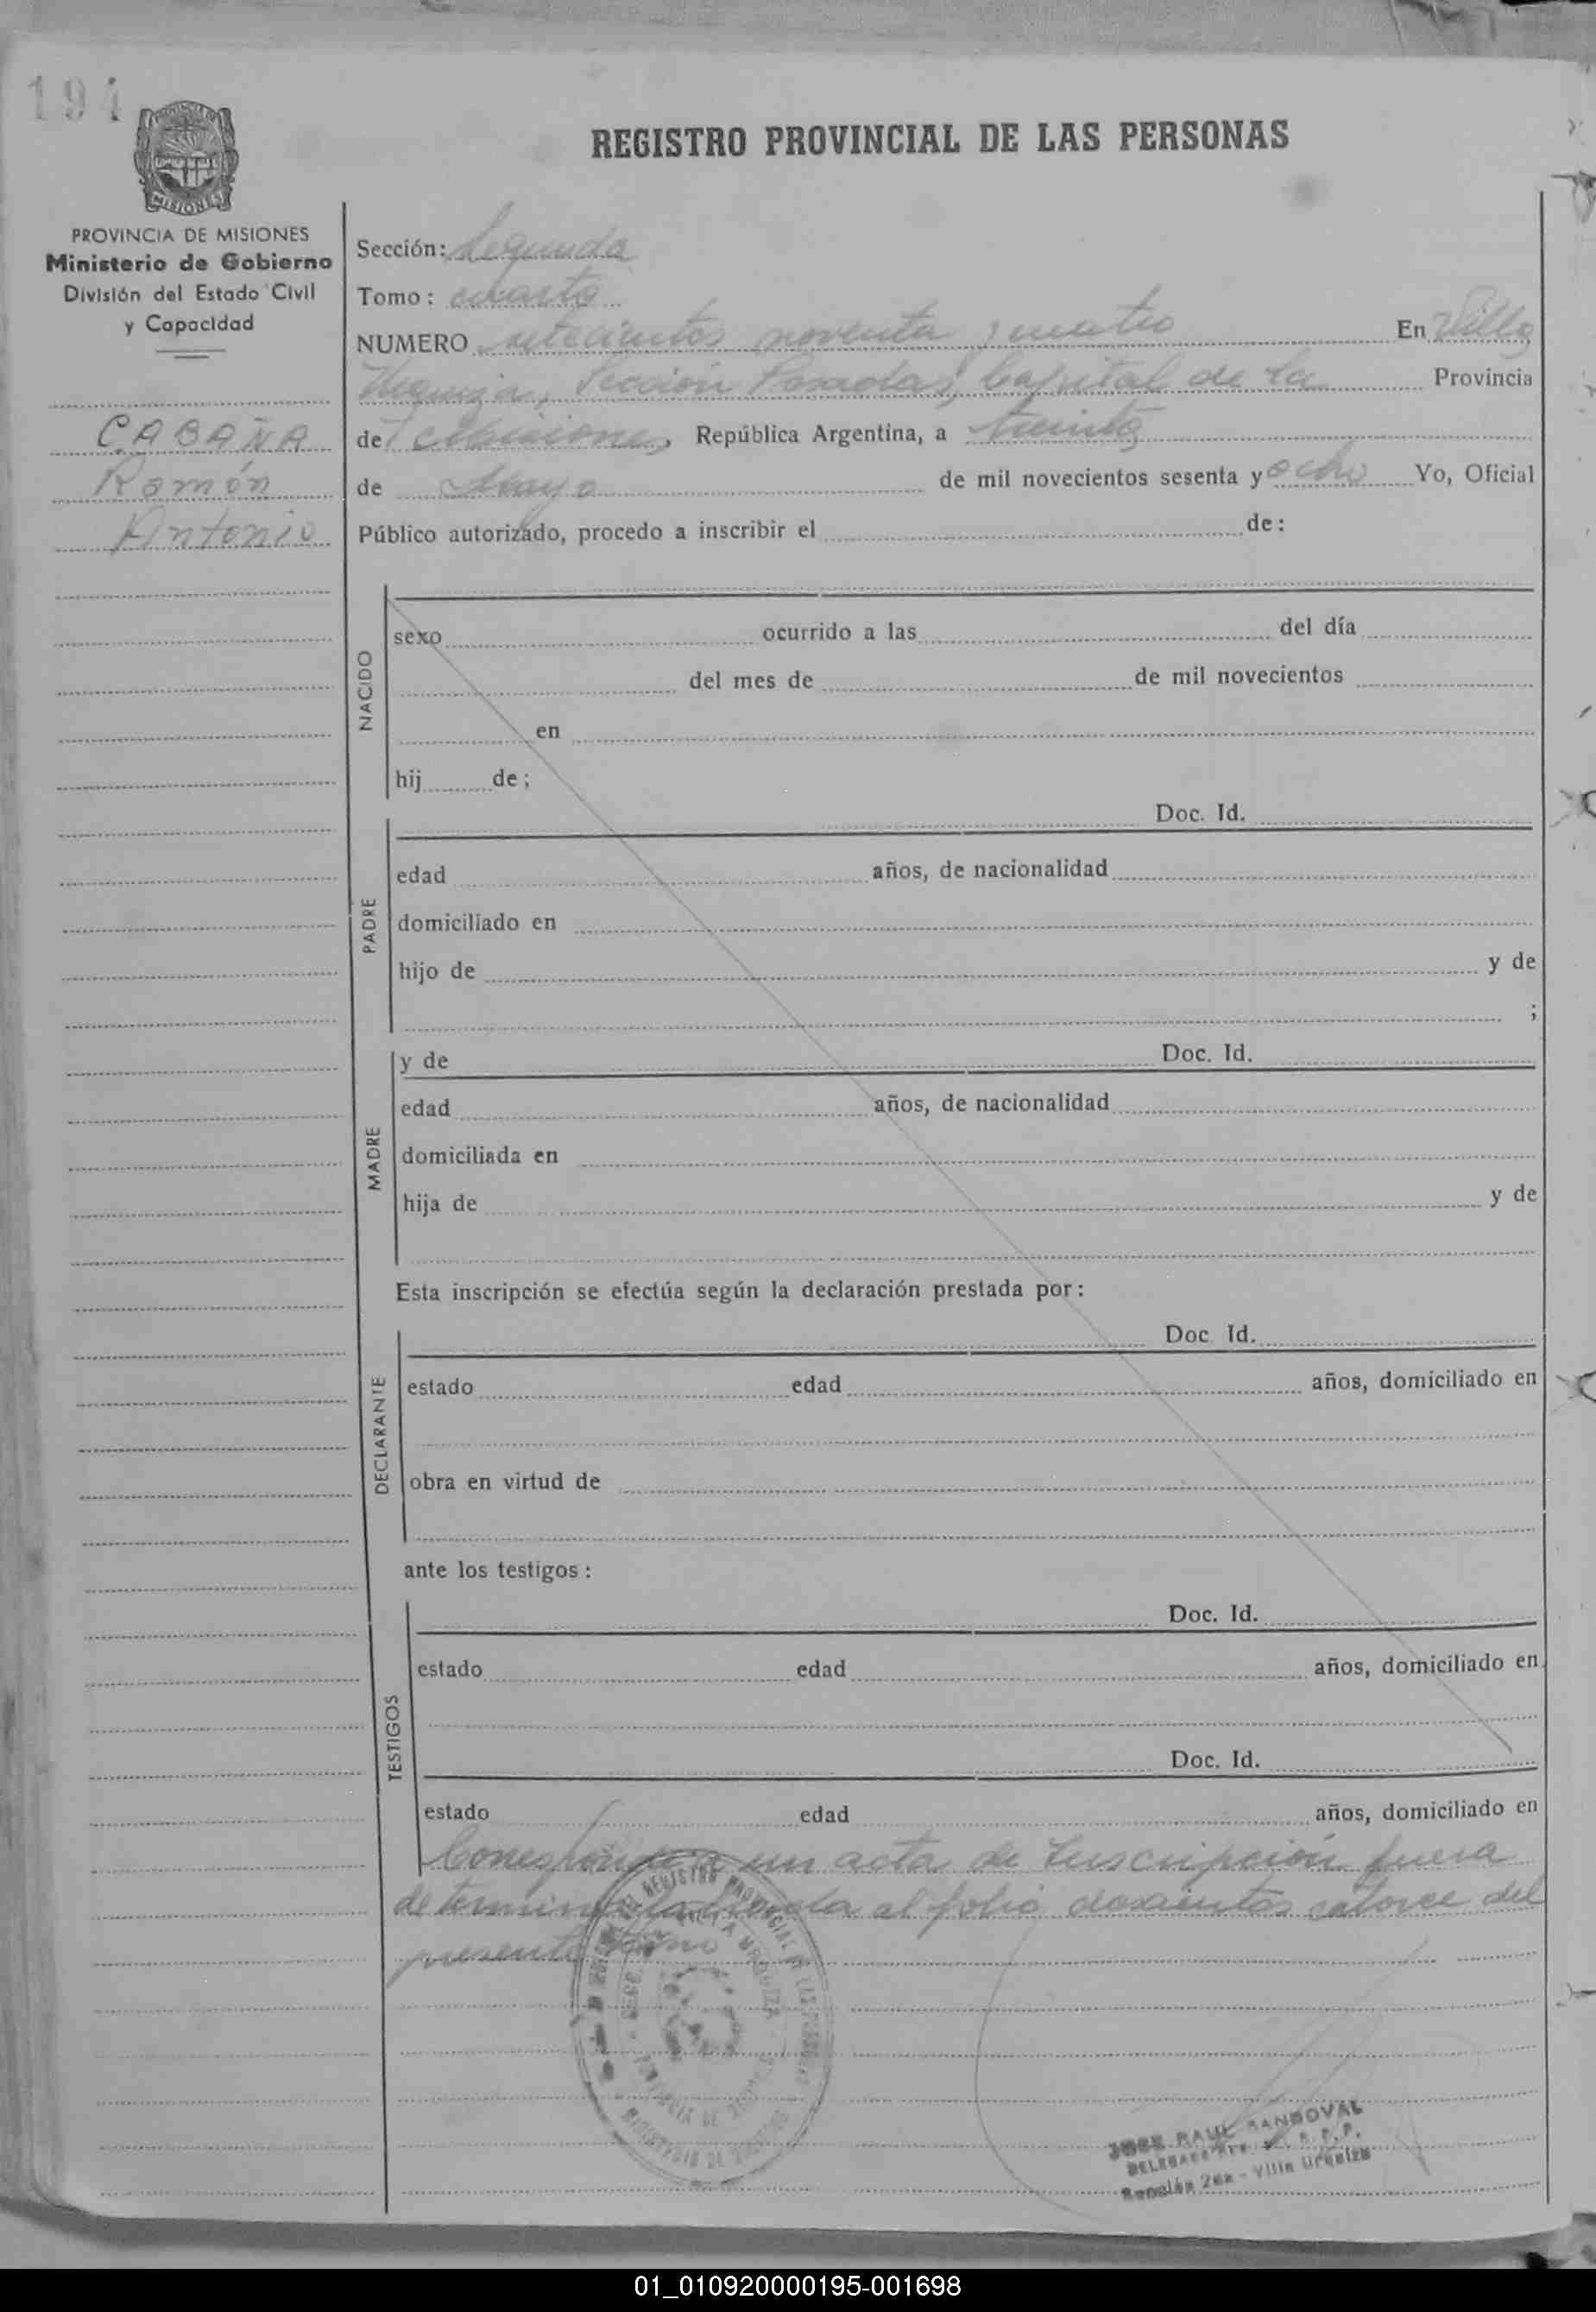 194
REGISTRO PROVINCIAL DE LAS PERSONAS
MISIONES
PROVINCIA DE MISIONES
Ministerio de Gobierno
División del Estado Civil
y Capacidad
CABAÑA
Ramón
Antonio
Sección: Segunda
Tomo: cuarto
NUMERO setecientos noventa y cuatro En Villa
Urquiza, Sección Posadas, Capital de la Provincia
de Misiones, República Argentina, a treinta
de Mayo de mil novecientos sesenta y ocho Yo, Oficial
Público autorizado, procedo a inscribir el de:
NACIDO
sexo ocurrido a las del día
del mes de de mil novecientos
en
hij de;
PADRE
Doc. Id.
edad años, de nacionalidad
domiciliado en
hijo de y de
;
MADRE
y de Doc. Id.
edad años, de nacionalidad
domiciliada en
hija de y de
Esta inscripción se efectúa según la declaración prestada por:
DECLARANTE
Doc. Id.
estado edad años, domiciliado en
obra en virtud de
ante los testigos:
TESTIGOS
Doc. Id.
estado edad años, domiciliado en
Doc. Id.
estado edad años, domiciliado en
Corresponde a un acta de Inscripción fuera
de termino al folio doscientos catorce del
presente tomo
JOSE RAUL SANDOVAL
Sección 2da - Villa Urquiza
01_010920000195-001698